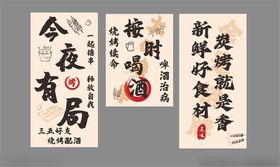 今夜有局
一起撸串
释放自我
三五好友
烧烤配酒
按时喝酒
烧烤续命
啤酒治病
炭烤就是香
新鲜好食材
美味